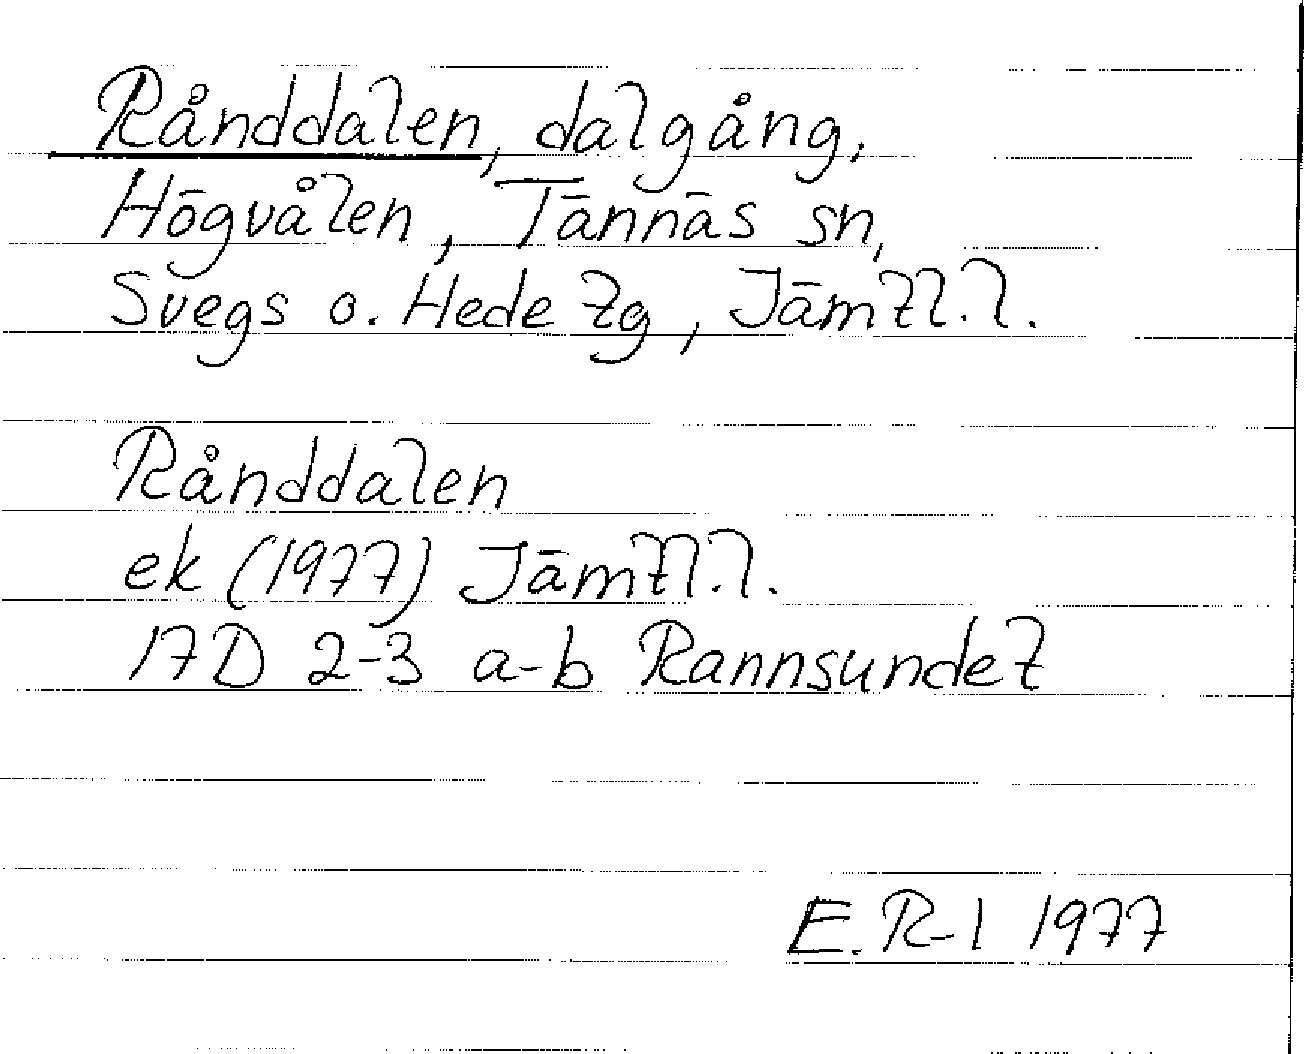 Rånddalen, dalgång,
Högvålen, Tännäs sn,
Svegs o. Hede tg, Jämtl. l.
Rånddalen
ek (1977) Jämtl. l.
17D 2-3 a-b Rannsundet
E. R-l 1977